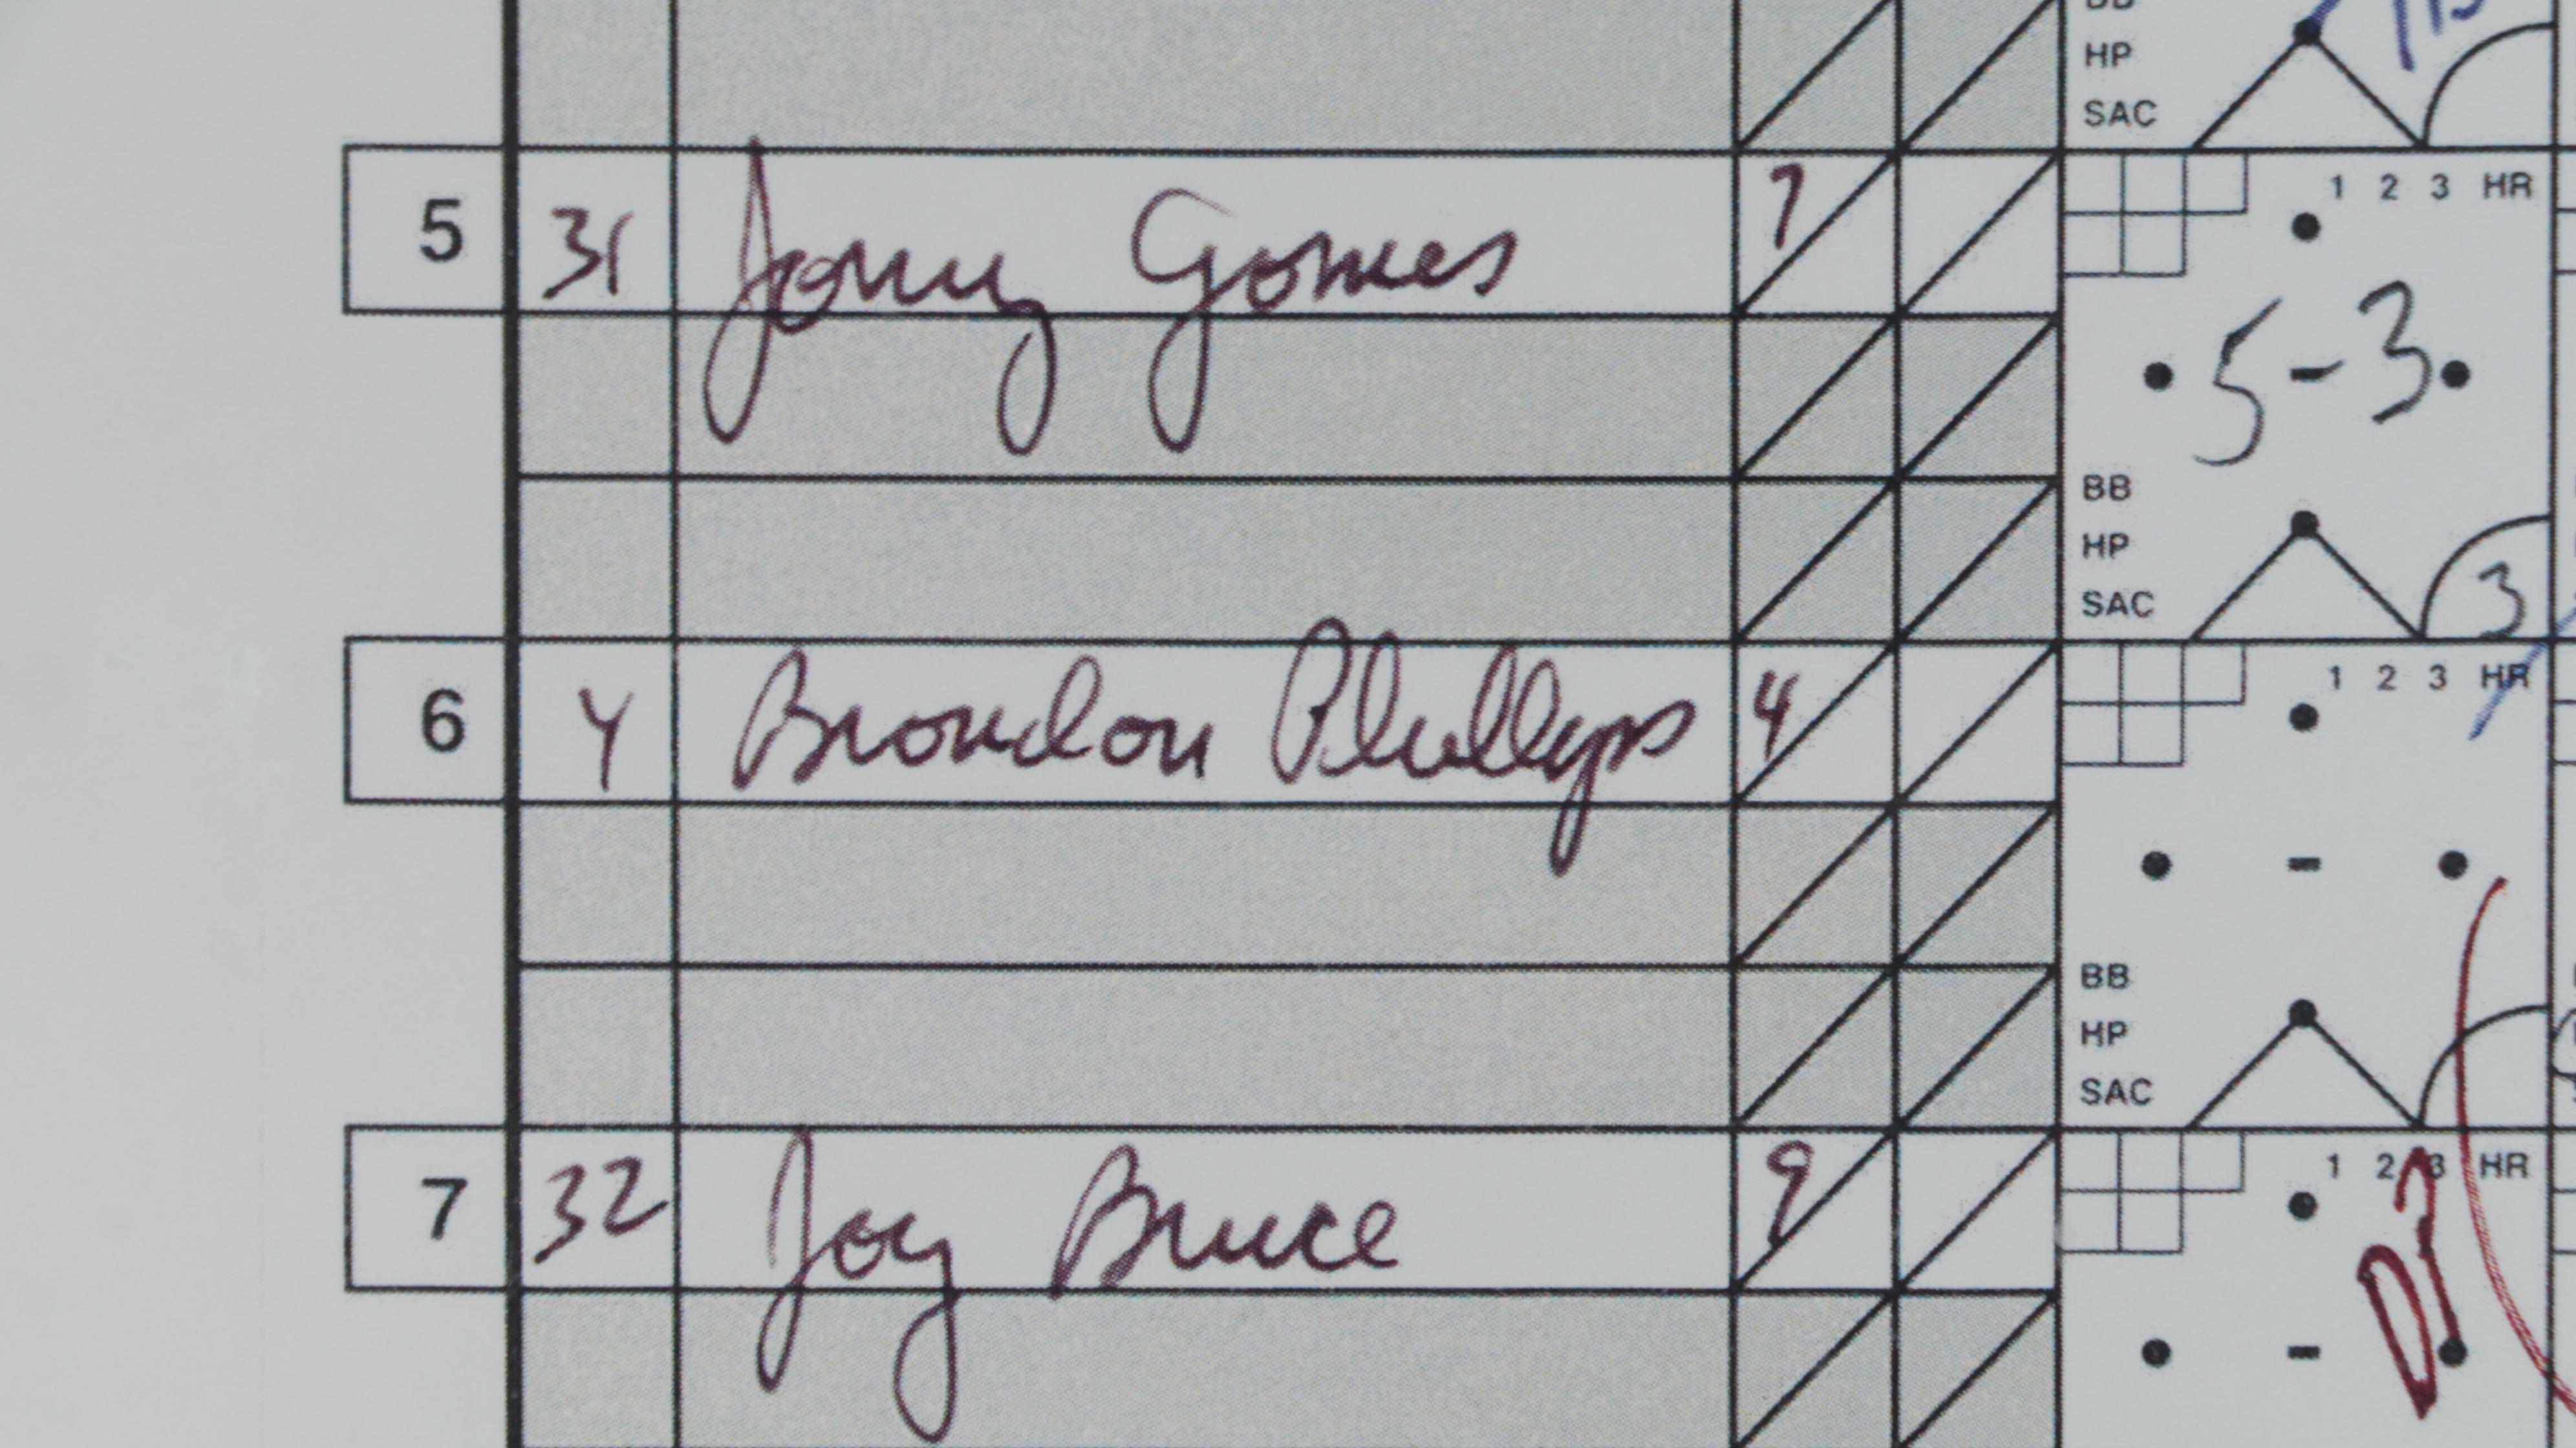 BB
HP
SAC
5 31 Jonny Gomes 7
1 2 3 HR
5-3
BB
HP
SAC
3
6 4 Brandon Phillips 4
1 2 3 HR
-
BB
HP
SAC
7 32 Jay Bruce 9
1 2 3 HR
-